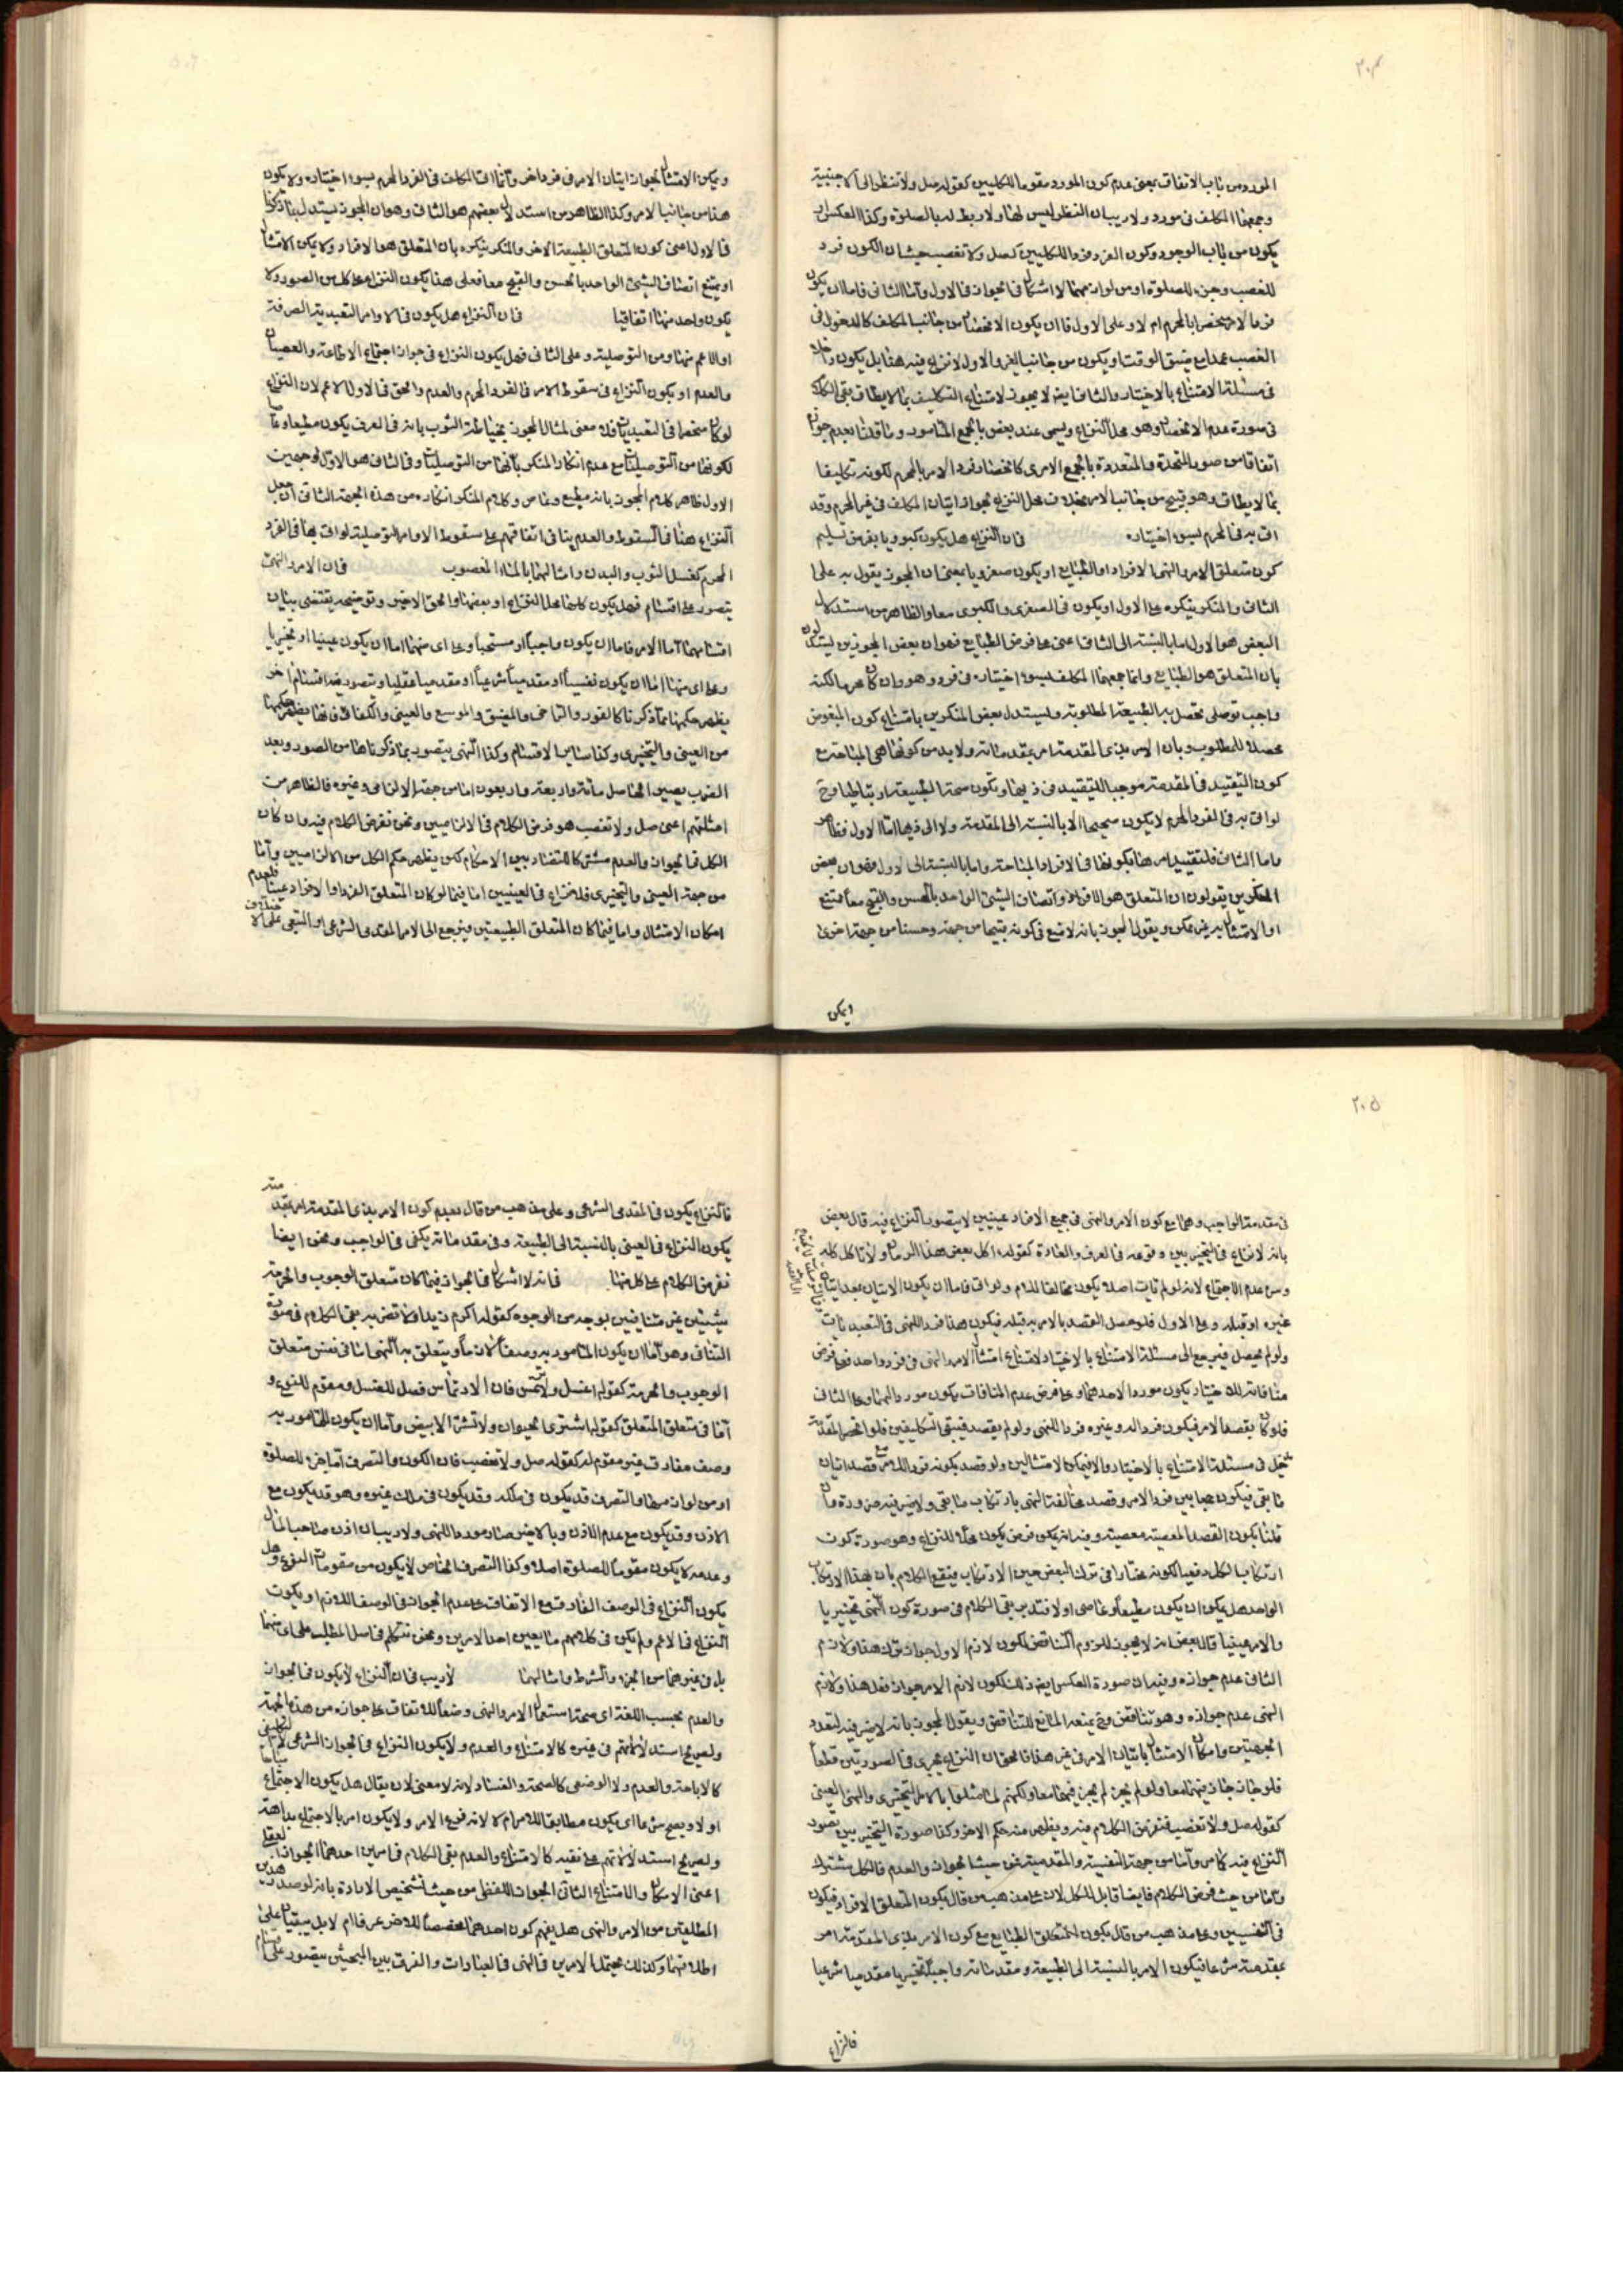 ٢٠٤
المورد من باب الاتفاق بمعنى عدم كون المورد مقوما للكليين كقوله صل ولا تنظر الى الاجنبية
وجمعهما المكلف في مورد ولا ريب ان النظر ليس لها ولا ربط له بالصلوة وكذا العكس او
يكون من باب الوجود وكون الفرد فردا للكليين كصل ولا تغصب حيث ان الكون فرد
للغصب وجزء للصلوة او من لوازمها لا اشكال في الجواز في الاول واما الثاني فاما ان يكون
فرد الامر منحصرا بالمحرم ام لا وعلى الاول فاما ان يكون الانحصار من جانب المكلف كالدخول في
الغصب عمدا مع ضيق الوقت او يكون من جانب الغير والاول لا نزاع فيه هنا بل يكون داخلا
في مسئلة الامتناع بالاختيار والثاني ايض لا يجوز لامتناع التكليف بما لا يطاق بقي الكلام
في صورة عدم الانحصار وهو محل النزاع ويسمى عند بعض بالجمع المأمورى وما قلنا بعدم جوازه
اتفاقا من صور المتحدة والمتعددة بالجمع الامرى كانحصار فرد الامر بالمحرم لكونه تكليفا
بما لا يطاق وهو قبيح من جانب الامر بخلاف محل النزاع لجواز اتيان المكلف في غير المحرم وقد
اتى به في المحرم بسوء اختياره    فان النزاع هل يكون كبرويا بفرض تسليم
كون متعلق الامر والنهى الافراد او الطبايع او يكون صغرويا بمعنى ان المجوز يقول به على
الثانى والمنكر ينكره على الاول او يكون في الصغرى والكبرى معا والظاهر من استدلال
البعض هو الاول اما بالنسبة الى الثانى اعنى على فرض الطبايع فهو ان بعض المجوزين يستدلون
بان المتعلق هو الطبايع وانما جمعهما المكلف بسوء اختياره في فرد وهو وان كان محرما لكنه
واجب توصلى تحصل به الطبيعة المطلوبة ويستدل بعض المنكرين بامتناع كون المبغوض
محصلا للمطلوب وبان الامر بذى المقدمة امر بمقدماته ولا بد من كونها هى المباحة مع
كون التقييد في المقدمة موجبا للتقييد في ذيها وتكون صحة الطبيعة ارتباطيا وح
لو اتى به في الفرد المحرم لا يكون صحيحا لا بالنسبة الى المقدمة ولا الى ذيها اما الاول فظاهر
واما الثانى فلتقييد امرها بكونها في الافراد المباحة واما بالنسبة الى الاول فهو ان بعض
المنكرين يقولون ان المتعلق هو الافراد واتصاف الشئ الواحد بالحسن والقبح معا ممتنع
او الامتثال به غير ممكن ويقول المجوز بانه لا منع في كونه قبيحا من جهة وحسنا من جهة اخرى
ويمكن
ويمكن الامتثال لجواز اتيان الامر في فرد اخر وانما اتى المكلف في الفرد المحرم بسوء اختياره ولا يكون
هذا من جانب الامر وكذا الظاهر من استدلال بعضهم هو الثانى وهو ان المجوز يستدل بما ذكرنا
في الاول اعنى كون المتعلق الطبيعة الاخر والمنكر ينكره بان المتعلق هو الافراد ولا يمكن الامتثال
او يمتنع اتصاف الشئ الواحد بالحسن والقبح معا فعلى هذا يكون النزاع على كل من الصور ولا
يكون واحد منها اتفاقيا    فان النزاع هل يكون في الاوامر التعبدية الصرفة
او الاعم منها ومن التوصلية وعلى الثانى فهل يكون النزاع في جواز اجتماع الاطاعة والعصيان
والعدم او يكون النزاع في سقوط الامر في الفرد المحرم والعدم والحق في الاول الاعم لان النزاع
لو كان منحصرا في التعبديات فلا معنى لمثال المجوز بخياطة الثوب بانه في العرف يكون مطيعا وعاصيا
لكونها من التوصليات مع عدم انكار المنكر بانها من التوصليات وفي الثانى هو الاول لوجهين
الاول ظاهر كلام المجوز بانه مطيع وعاص وكلام المنكر انكاره من هذه الجهة الثانى ان جعل
النزاع هنا في السقوط والعدم ينافى اتفاقهم على سقوط الاوامر التوصلية لو اتى بها في الفرد
المحرم كغسل الثوب والبدن وامثالهما بالماء المغصوب    فان الامر والنهى
يتصور على اقسام فهل يكون كلها محل النزاع او بعضها والحق الاخير وتوضيحه يقتضى بيان
اقسامهما اما الامر فاما ان يكون واجبا او مستحبا وعلى اى منهما اما ان يكون عينيا او تخييريا
وعلى اى منها اما ان يكون نفسيا او مقدميا شرعيا او مقدميا عقليا ويتصور فيه اقسام اخر
يظهر حكمها مما ذكرنا كالفور والتراخى والمضيق والموسع والعينى والكفائى فانها يظهر حكمها
من العينى والتخييرى وكذا ساير الاقسام وكذا النهى يتصور بما ذكرناها من الصور وبعد
الضرب يصير الحاصل مائة واربعة واربعون اما من جهة الالزامى وغيره فالظاهر من
امثلتهم اعنى صل ولا تغصب هو فرض الكلام في الالزاميين ونحن نفرض الكلام فيه وان كان
الكل في الجواز والعدم مشتركا للتضاد بين الاحكام لكن يظهر حكم الكل من الالزاميين واما
من جهة العينى والتخييرى فلا نزاع في العينيين اما فيما لو كان المتعلق الفرد او الافراد عينا فلعدم
امكان الامتثال واما فيما كان المتعلق الطبيعتين فيرجع الى الامر المقدمى الشرعى او التبعى على
٢٠٥
في مقدمة الواجب وهما مع كون الامر والنهى في جميع الافراد عينيين لا يتصور النزاع فيه قال بعض
بانه لا نزاع في التخييريين وقوعه في العرف والعادة كقوله اكل بعض هذا الرمان ولا تاكل كله
ومن عدم الاجتماع لانه لو لم يات اصلا يكون مخالفا للامر ولو اتى فاما ان يكون الاتيان بعد اتيان
غيره او قبله وعلى الاول فلو حصل القصد بالامر به قبله فيكون هذا فردا للنهى في التعبديات
ولو لم يحصل فيرجع الى مسئلة الامتناع بالاختيار لامتناع امتثال الامر والنهى في فرد واحد فعلى فرض
منافاته للاختيار يكون موردا لاحدهما وعلى فرض عدم المنافات يكون موردا لهما وعلى الثانى
فلو كان بقصد الامر فيكون فردا له وغيره فردا للنهى ولو لم يقصد فيبقى التكليفين فلو انحصر المقدمة
تدخل في مسئلة الامتناع بالاختيار والا فيمكن الامتثالين ولو قصد بكونه فردا للامر مع قصد اتيان
ما بقى فيكون جمعا بين فرد الامر وقصد مخالفة النهى بارتكاب ما بقى ولا ضير فيه ضرورة وان
قلنا بكون القصد المعصية معصية وفيه انه يمكن فرض يكون محلا للنزاع وهو صورة كون
ارتكاب الكل دفعيا لكونه مختارا في ترك البعض حين الارتكاب فيقع الكلام بان بهذا الارتكاب
الواحد هل يمكن ان يكون مطيعا وعاصى او لا فتدبر بقى الكلام في صورة كون النهى تخييريا
والامر عينيا قال بعض انه لا يجوز للزوم التناقض لكون لازم الاول جواز ترك هذا ولازم
الثانى عدم جوازه وفيه ان صورة العكس ايض كذلك لكون لازم الامر جواز فعل هذا ولازم
النهى عدم جوازه وهو تناقض وح يمنعه المانع للتناقض ويقول المجوز بانه لا ضير فيه لتعدد
الجهتين وامكان الامتثال باتيان الامر في غير هذا فالحق ان النزاع يجرى في الصورتين قطعا
فلو جاز جاز فيهما معا ولو لم يجز لم يجز فيهما معا ولكنهم لما مثلوا بالامر التخييرى والنهى العينى
كقوله صل ولا تغصب فنفرض الكلام فيه ويظهر منه حكم الاخر وكذا صورة التخييريين يتصور
النزاع فيه كما مر واما من جهة النفسية والمقدمية فمن حيث الجواز والعدم فالكل مشترك
واما من حيث فرض الكلام فايضا قابل للكل لان على مذهب من قال بكون المتعلق الافراد فيكون
في النفسيين وعلى مذهب من قال بكون المتعلق الطبايع مع كون الامر بذى المقدمة امر
بمقدمته شرعا فيكون الامر بالنسبة الى الطبيعة ومقدماته واجبا تخييريا مقدميا شرعيا
فالنزاع
فالنزاع يكون في المقدمى الشرعى وعلى مذهب من قال بعدم كون الامر بذى المقدمة امر بمقدمته
يكون النزاع في العينى بالنسبة الى الطبيعة وفي مقدماته يكفى في الواجب ونحن ايضا
نفرض الكلام على كل منها    فانه لا اشكال في الجواز فيما كان متعلق الوجوب والحرمة
شيئين غير متنافيين بوجه من الوجوه كقوله اكرم زيدا ولا تضربه بقى الكلام في صورة
التنافى وهو اما ان يكون المامور به وصفا لازما ويتعلق به النهى اما في نفس متعلق
الوجوب والحرمة كقوله اغسل ولا ترتمس فان الارتماس فصل للغسل ومقوم للنوع و
اما في متعلق المتعلق كقوله اشترى الحيوان ولا تشتر الابيض واما ان يكون للمامور به
وصف مفارق غير مقوم له كقوله صل ولا تغصب فان الكون والتصرف اما جزء للصلوة
او من لوازمها والتصرف قد يكون في ملكه وقد يكون في ملك غيره وهو قد يكون مع
الاذن وقد يكون مع عدم الاذن وبالاخير صار موردا للنهى ولا ريب ان اذن صاحب المال
وعدمه لا يكون مقوما للصلوة اصلا وكذا التصرف الخاص لا يكون من مقومات النوع وهل
يكون النزاع في الوصف المفارق مع الاتفاق على عدم الجواز في الوصف اللازم او يكون
النزاع في الاعم ولم يكن في كلامهم ما يعين احد الامرين ونحن نتكلم في اصل المطلب على اى منهما
بل في غيرهما من الجزء والشرط وامثالهما    لا ريب في ان النزاع لا يكون في الجواز
والعدم بحسب اللغة اى صحة استعمال الامر والنهى وضعا للاتفاق على جوازه من هذه الجهة
ولصريح استدلالاتهم في غيره كالامتناع والعدم ولا يكون النزاع في الجواز الشرعى التكليفى
كالاباحة والعدم ولا الوضعى كالصحة والفساد لانه لا معنى لان يقال هل يكون الاجتماع مباحا
او لا ويصح شرعا اى يكون مطابقا للامر ام لا لانه فرع الامر ولا يكون امر بالاجتماع بداهة
ولصريح استدلالاتهم على نفيه كالامتناع والعدم بقى الكلام في امرين احدهما الجواز العقلى
اعنى الامكان والامتناع الثانى الجواز اللفظى من حيث تشخيص الارادة بانه لو صدر هذين
المطلقين من الامر والنهى هل يفهم كون احدهما مخصصا للاخر عرفا ام لا بل يبقيان على
اطلاقهما وكذلك يحتمل الامرين في النهى في العبادات والفرق بين المبحثين يتصور على